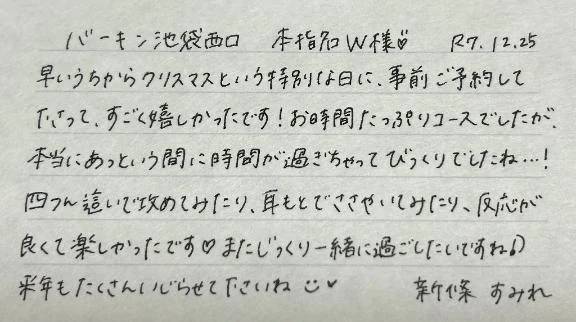 バーキン池袋西口 本指名W様♡ R7.12.25
早いうちからクリスマスという特別な日に、事前ご予約して
下さって、すごく嬉しかったです!お時間たっぷりコースでしたが、
本当にあっという間に時間が過ぎちゃってびっくりでしたね…!
四つん這いで攻めてみたり、耳もとでささやいてみたり、反応が
良くて楽しかったです♡またじっくり一緒に過ごしたいですね♪)
来年もたくさんいじらせて下さいね☺♥ 新條 すみれ